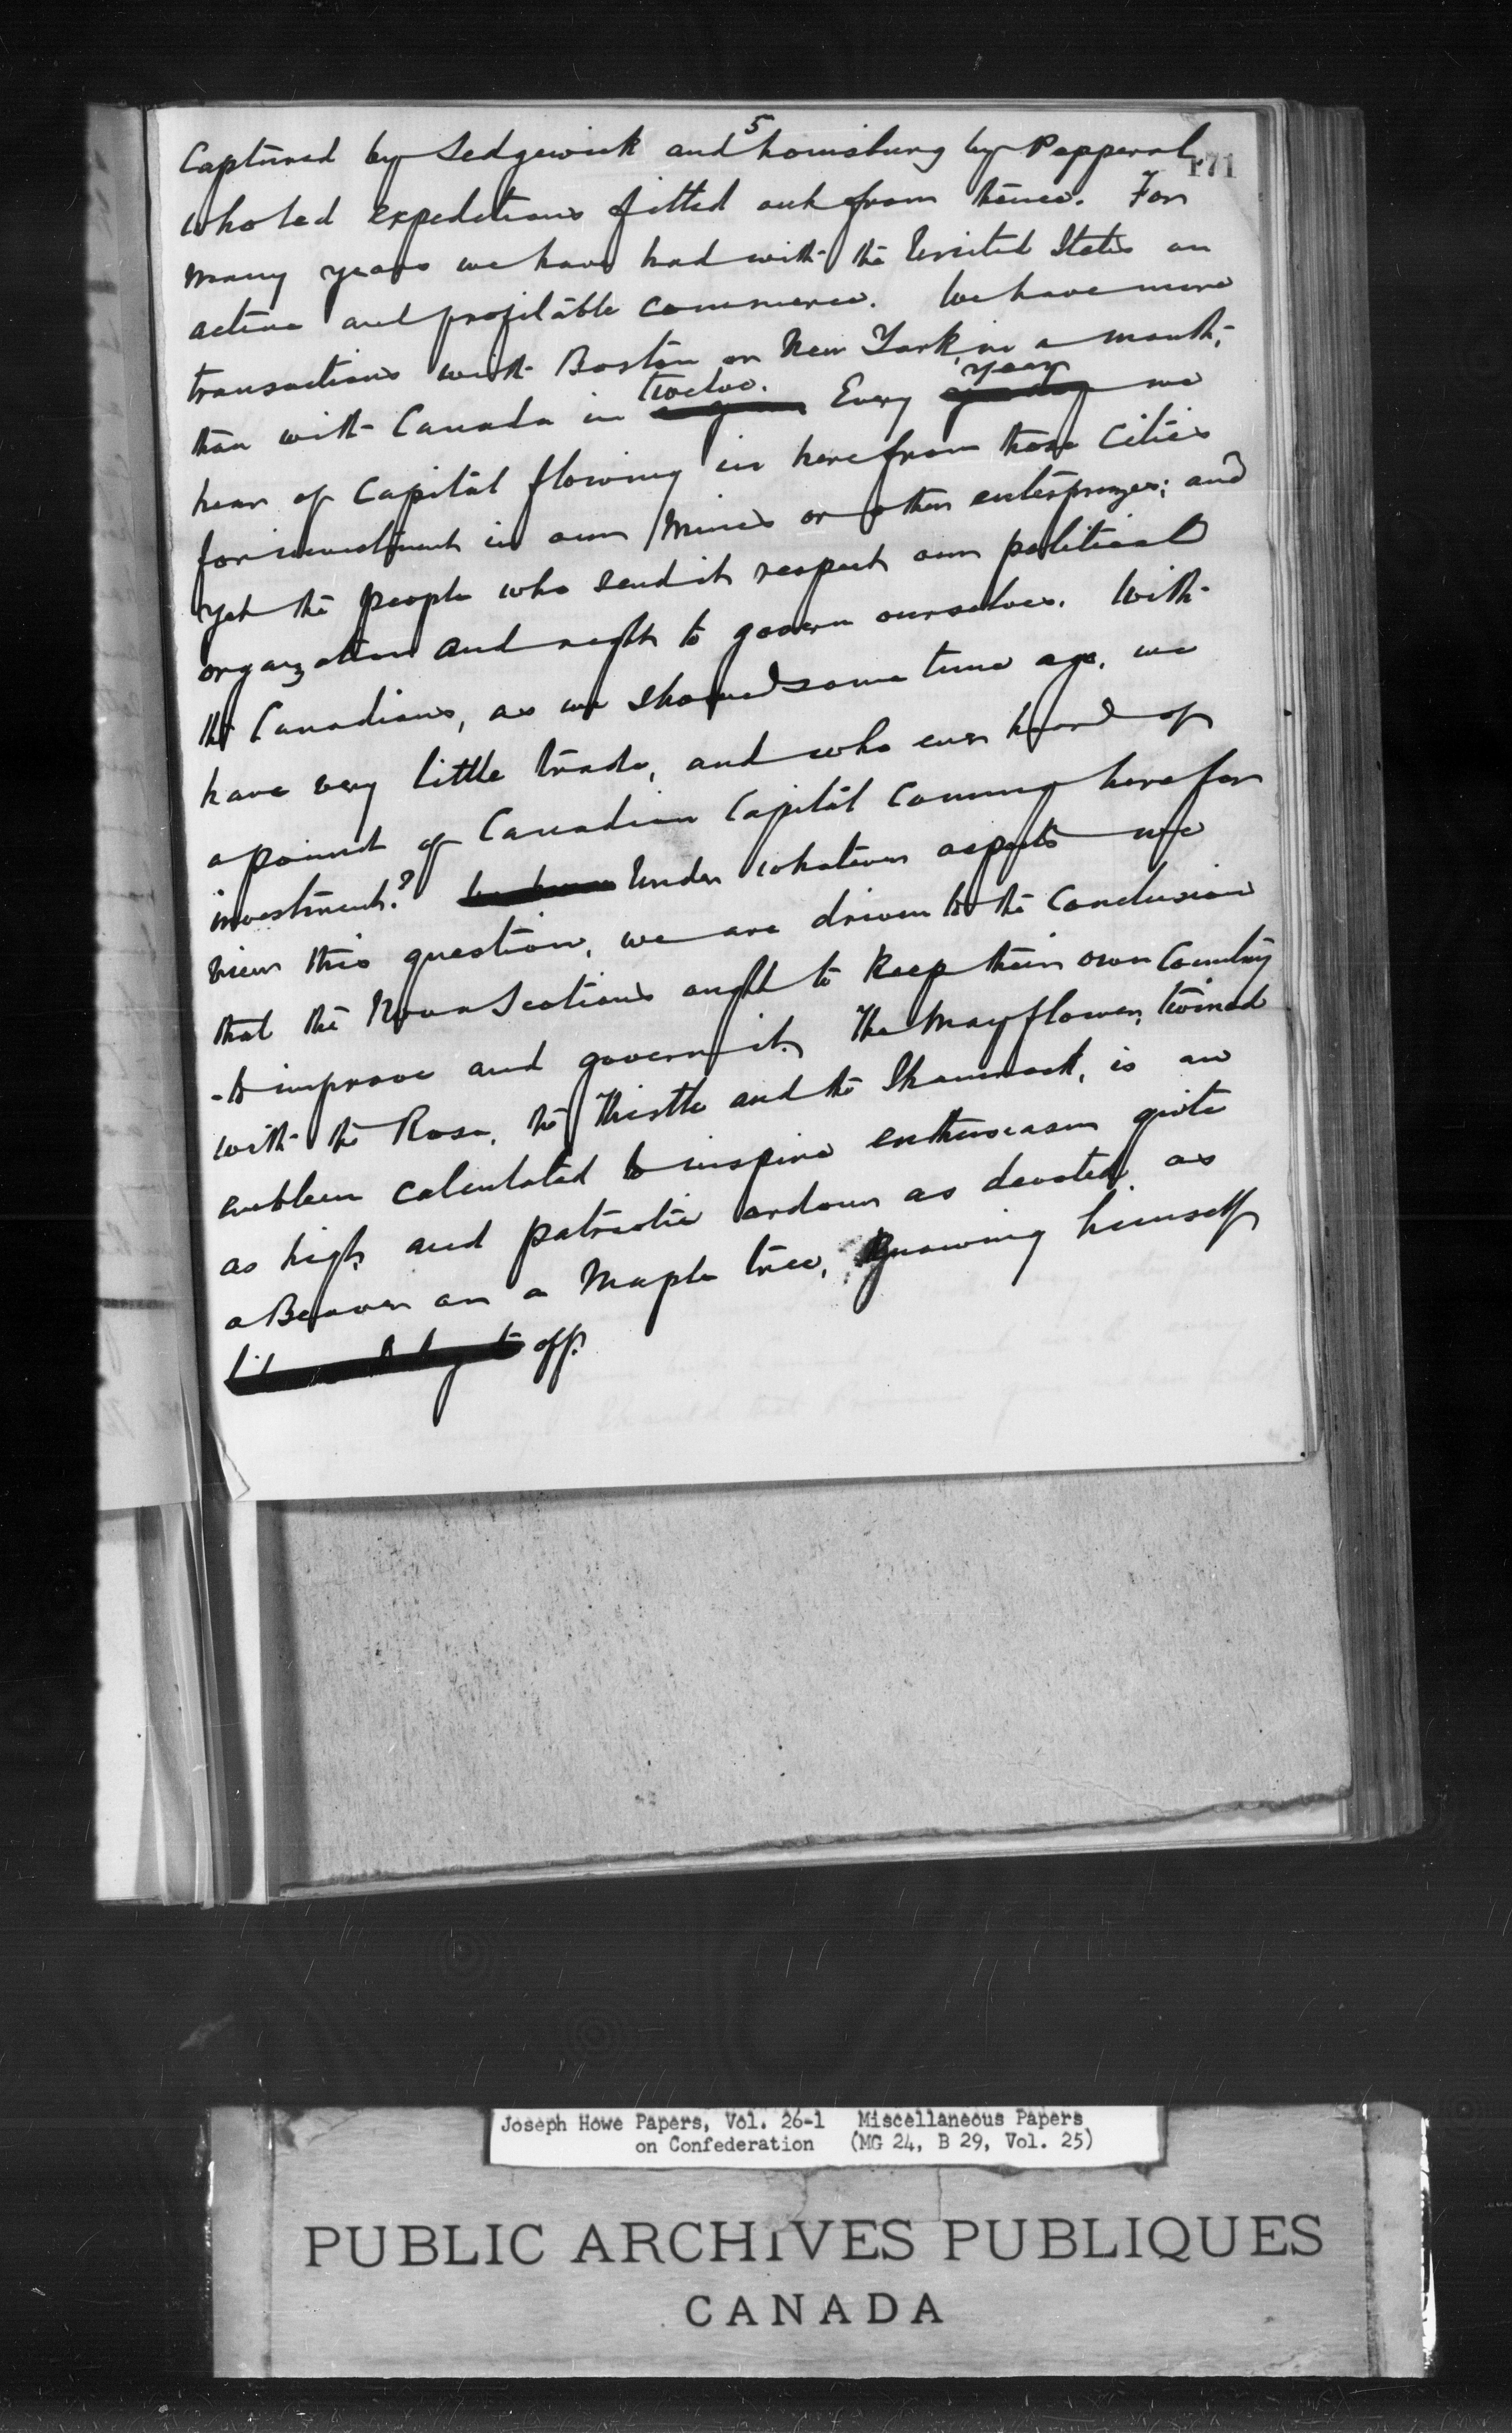 5
171
Captured by Sedgewick and Louisburg by Pepperal,
who led expeditions fitted out from thence. For
many years we have had with the United States an
active and profitable commerce. We have more
transactions with Boston or New York in a month,
than with Canada in twelve. Every year we
hear of Capital flowing in here from those Cities
for investment in our Mines or other enterprizes; and
yet the people who send it respect our political
organzation and right to govern ourselves. With
the Canadians, as we showed some time ago, we
have very little trade, and who ever heard of
a pound of Canadian Capital coming here for
investment? Under whatever aspects we
view this question, we are driven to the conclusion
that the Nova Scotians ought to keep their own Country
to improve and govern it. The Mayflower, twined
with the Rose, the Thistle and the Shamrock, is an
emblem calculated to inspire enthusiasm quite
as high and patriotic ardour as devoted, as
a Beaver on a Maple tree, Gnawing himself
off.
Joseph Howe Papers, Vol. 26-1 Miscellaneous Papers
on Confederation (MG 24, B 29, Vol. 25)
PUBLIC ARCHIVES PUBLIQUES
CANADA